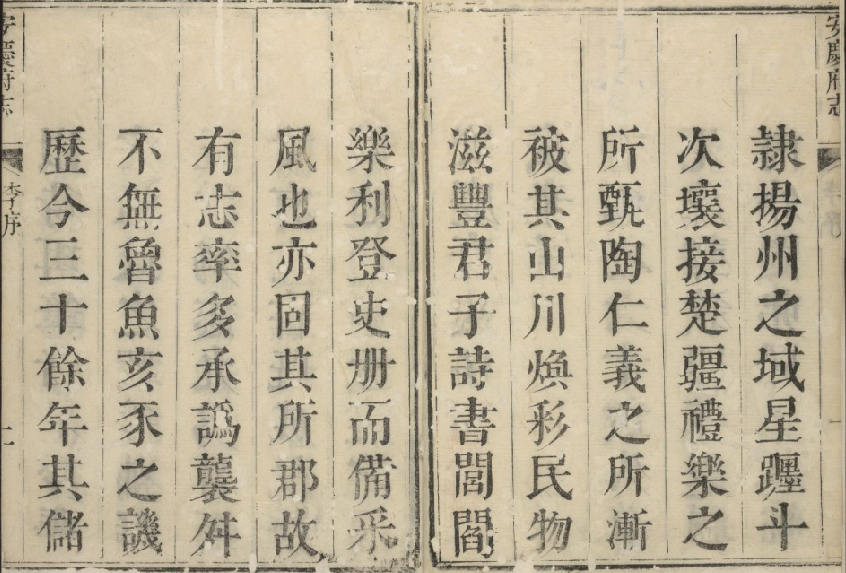 安慶府志
隷揚州之域星躔斗
次壤接楚疆禮樂之
所甄陶仁義之所漸
被其山川煥彩民物
滋豐君子詩書閭閻
樂利登史册而備采
風也亦固其所郡故
有志率多承譌襲舛
不無魯魚亥豕之譏
歷今三十餘年其儲
安慶府志
李序